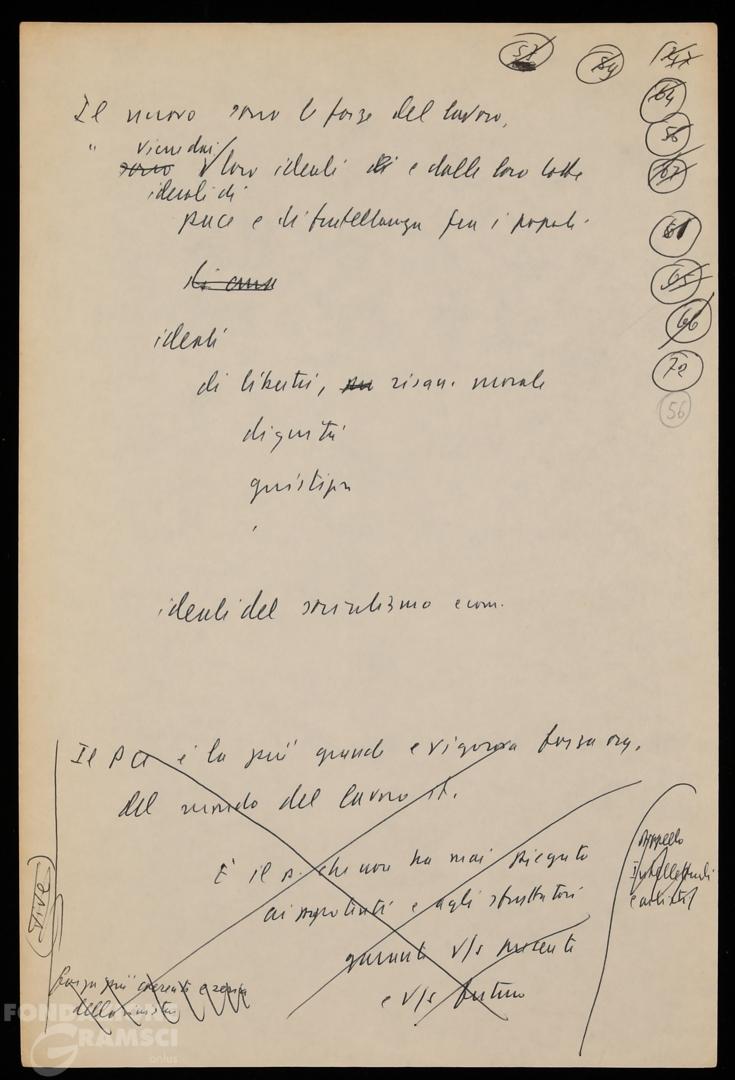 57
64
64
56
67
61
65
66
72
56
Il nuovo sono le forze del lavoro,
" viene dai
sono loro ideali di e dalle loro lotte
ideali di
pace e di fratellanza fra i popoli.
ideali
di libertà, risan. morale
dignità
giustizia
ideali del socialismo e com.
Il PCI è la più grande e vigorosa forza org.
del mondo del lavoro it.
È il p. che non ha mai piegato
ai potenti e agli sfruttatori
garante v/s presente
e v/s futuro
Appello
Intellettuali
e artisti
forza più coerente e seria
della sinistra
FONDAZIONE
GRAMSCI
onlus